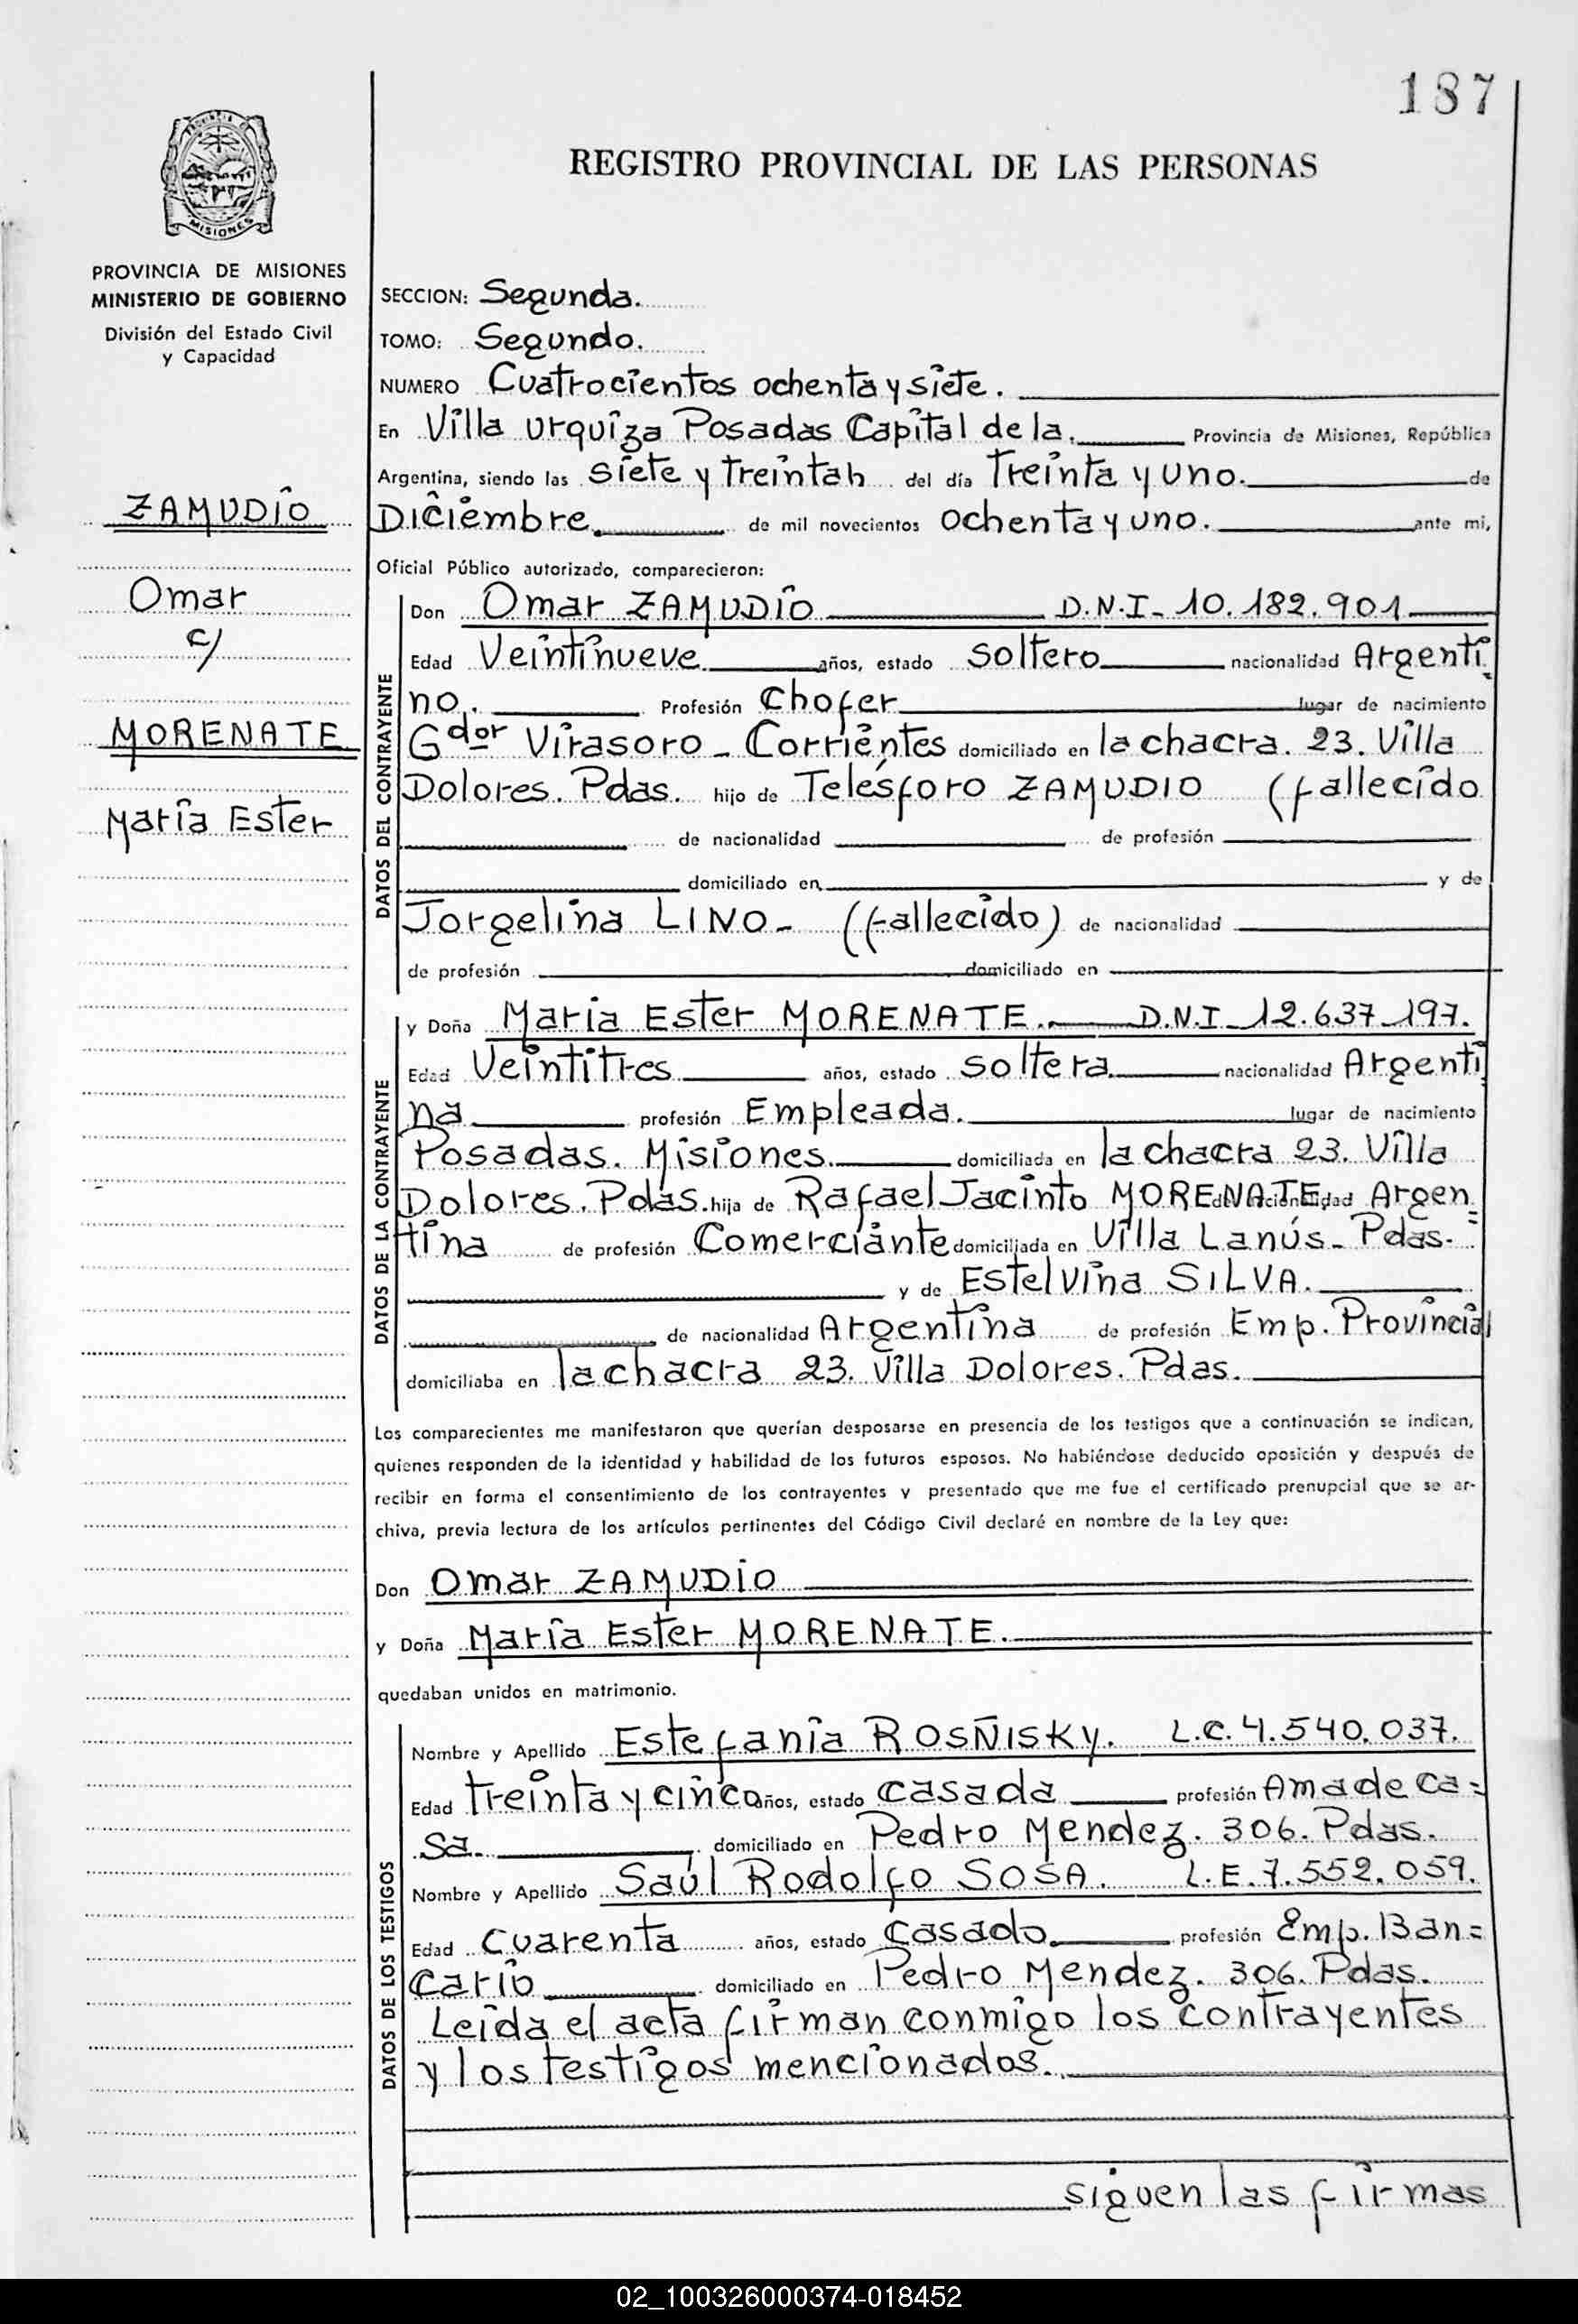 187
REGISTRO PROVINCIAL DE LAS PERSONAS
PROVINCIA
MISIONES
PROVINCIA DE MISIONES
MINISTERIO DE GOBIERNO
División del Estado Civil
y Capacidad
ZAMUDIO
Omar
c/
MORENATE
María Ester
SECCION: Segunda.
TOMO: Segundo.
NUMERO Cuatrocientos ochenta y siete.
En Villa Urquiza Posadas Capital de la. Provincia de Misiones, República
Argentina, siendo las siete y treintah del día Treinta y uno. de
Diciembre. de mil novecientos ochenta y uno. ante mi,
Oficial Público autorizado, comparecieron:
DATOS DEL CONTRAYENTE
Don Omar ZAMUDIO D.N.I- 10.182.901
Edad Veintinueve años, estado soltero nacionalidad Argenti
no. Profesión Chofer lugar de nacimiento
Gdor Virasoro - Corrientes domiciliado en la chacra. 23. Villa
Dolores. Pdas. hijo de Telésforo ZAMUDIO (fallecido
de nacionalidad de profesión
domiciliado en y de
Jorgelina LINO - (fallecido) de nacionalidad
de profesión domiciliado en
DATOS DE LA CONTRAYENTE
y Doña Maria Ester MORENATE. D.N.I 12.637.197.
Edad Veintitres años, estado soltera nacionalidad Argenti
na profesión Empleada. lugar de nacimiento
Posadas. Misiones. domiciliada en la chacra 23. Villa
Dolores. Pdas. hija de Rafael Jacinto MORENATE de nacionalidad Argen
tina de profesión Comerciante domiciliada en Villa Lanús - Pdas.
y de Estelvina SILVA.
de nacionalidad Argentina de profesión Emp. Provincial
domiciliaba en la chacra 23. Villa Dolores. Pdas.
Los comparecientes me manifestaron que querían desposarse en presencia de los testigos que a continuación se indican,
quienes responden de la identidad y habilidad de los futuros esposos. No habiéndose deducido oposición y después de
recibir en forma el consentimiento de los contrayentes y presentado que me fue el certificado prenupcial que se ar-
chiva, previa lectura de los artículos pertinentes del Código Civil declaré en nombre de la Ley que:
Don Omar ZAMUDIO
y Doña María Ester MORENATE.
quedaban unidos en matrimonio.
DATOS DE LOS TESTIGOS
Nombre y Apellido Estefania ROSÑISKY. L.C. 4.540.037.
Edad treinta y cinco años, estado casada profesión Ama de ca=
sa. domiciliado en Pedro Mendez. 306. Pdas.
Nombre y Apellido Saúl Rodolfo SOSA. L.E. 7.552.059.
Edad Cuarenta años, estado Casado. profesión Emp. Ban=
cario domiciliado en Pedro Mendez. 306. Pdas.
Leida el acta firman conmigo los contrayentes
y los testigos mencionados.
siguen las firmas
02_100326000374-018452